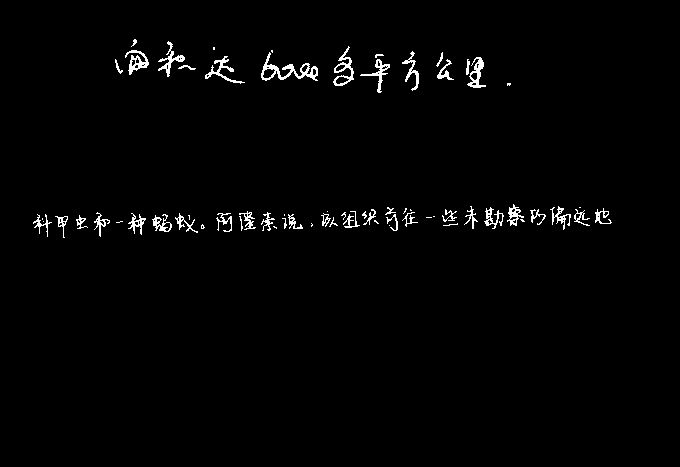 面积达6000多平方公里.
科甲虫和一种蚂蚁。阿隆索说,该组织前往一些未勘察的偏远地